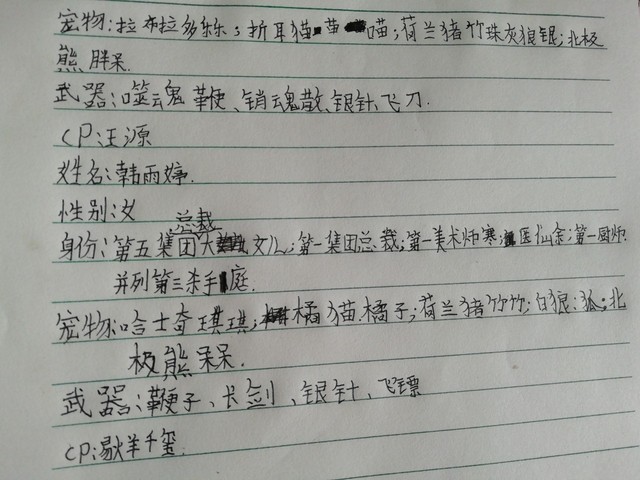 宠物:拉布拉多乐乐;折耳猫喵;荷兰猪竹珠灰狼银;北极
熊胖呆.
武器:噬魂鞭、销魂散、银针、飞刀.
CP:王源
姓名:韩雨婷.
性别:女
身份:第五集团总裁大女儿;第一集团总裁;第一美术师寒;医仙余;第一厨师.
并列第三杀手庭.
宠物:哈士奇琪琪;橘猫.橘子;荷兰猪竹竹;白狼:狐;北
极熊呆呆.
武器:鞭子、长剑、银针、飞镖
CP:易烊千玺.